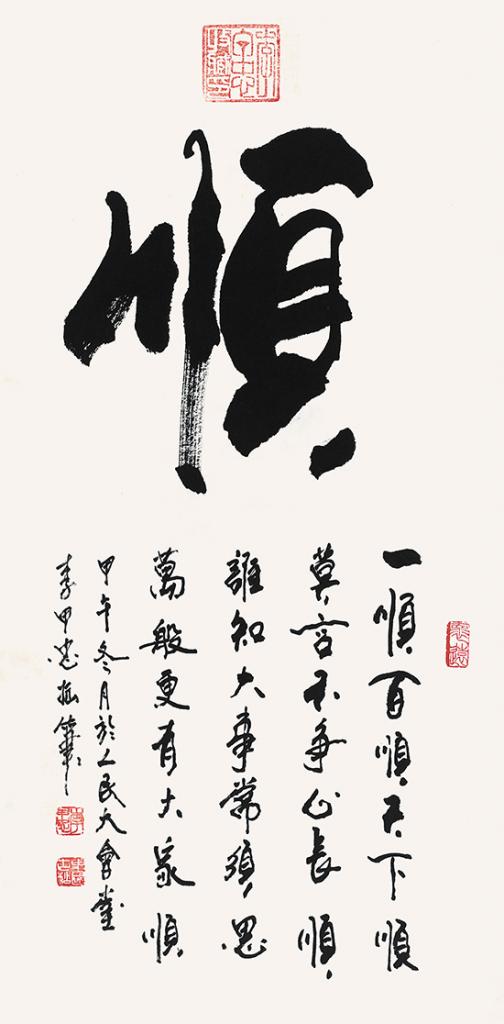 順
一順百順天下順
莫言不爭心長順
誰知大事常須思
萬般更有大家順
甲午冬月於人民大會堂
李甲忠拙筆